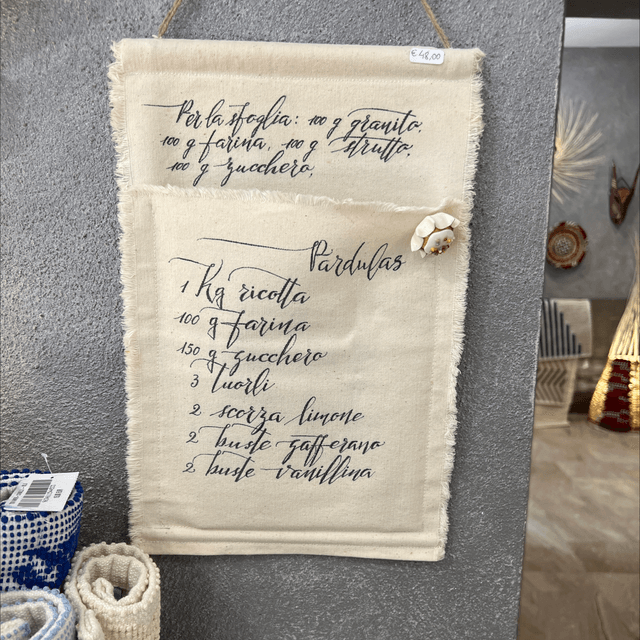 € 48,00
Per la sfoglia: 100 g granito,
100 g farina, 100 g strutto,
100 g zucchero,
Pardulas
1 Kg ricotta
100 g farina
150 g zucchero
3 tuorli
2 scorza limone
2 buste zafferano
2 buste vanillina